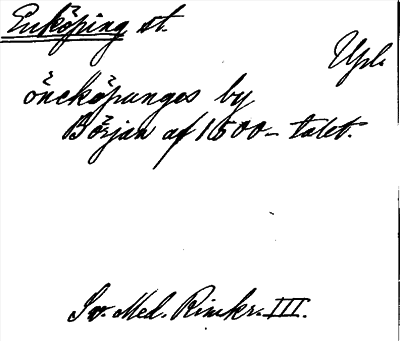 Enköping st.
Upl.
öneköpunges by
Början af 1500-talet.
Sv. Med. Rimkr. III.